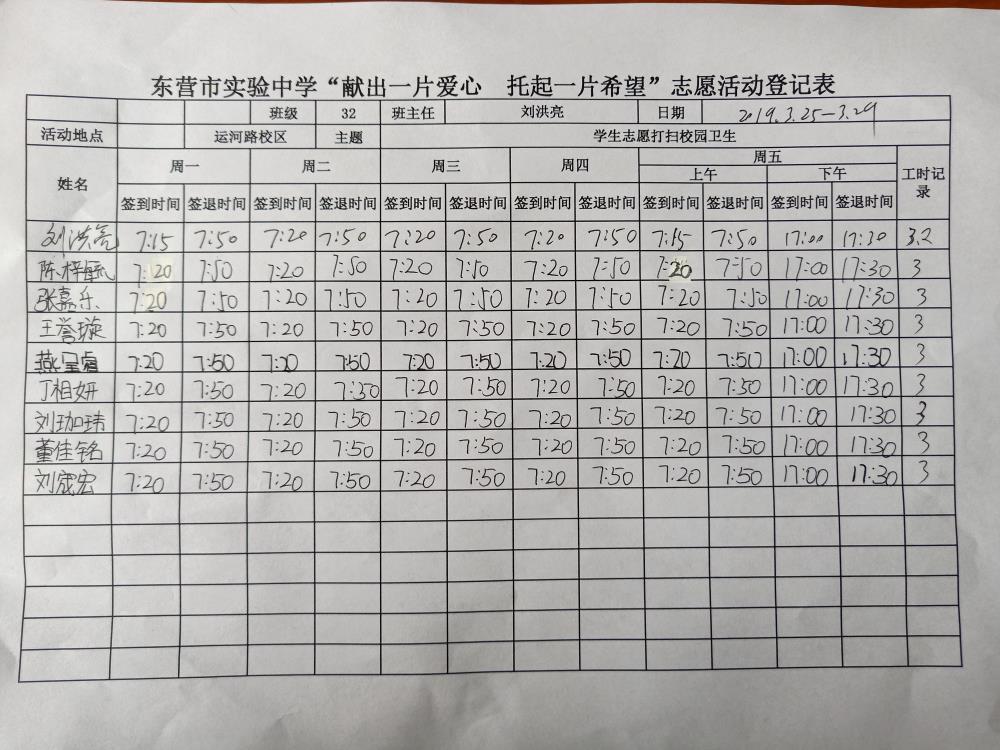 东营市实验中学“献出一片爱心 托起一片希望”志愿活动登记表
班级 32 班主任 刘洪亮 日期 2019.3.25—3.29
活动地点 运河路校区 主题 学生志愿打扫校园卫生
姓名 周一 周二 周三 周四 周五 工时记录
上午 下午
签到时间 签退时间 签到时间 签退时间 签到时间 签退时间 签到时间 签退时间 签到时间 签退时间 签到时间 签退时间
刘洪亮 7:15 7:50 7:20 7:50 7:20 7:50 7:20 7:50 7:15 7:50 17:00 17:30 3.2
陈梓毓 7:20 7:50 7:20 7:50 7:20 7:50 7:20 7:50 7:20 7:50 17:00 17:30 3
张嘉乐 7:20 7:50 7:20 7:50 7:20 7:50 7:20 7:50 7:20 7:50 17:00 17:30 3
王誉璇 7:20 7:50 7:20 7:50 7:20 7:50 7:20 7:50 7:20 7:50 17:00 17:30 3
7:20 7:50 7:20 7:50 7:20 7:50 7:20 7:50 7:20 7:50 17:00 17:30 3
丁相妍 7:20 7:50 7:20 7:50 7:20 7:50 7:20 7:50 7:20 7:50 17:00 17:30 3
刘珈玮 7:20 7:50 7:20 7:50 7:20 7:50 7:20 7:50 7:20 7:50 17:00 17:30 3
董佳铭 7:20 7:50 7:20 7:50 7:20 7:50 7:20 7:50 7:20 7:50 17:00 17:30 3
7:20 7:50 7:20 7:50 7:20 7:50 7:20 7:50 7:20 7:50 17:00 17:30 3